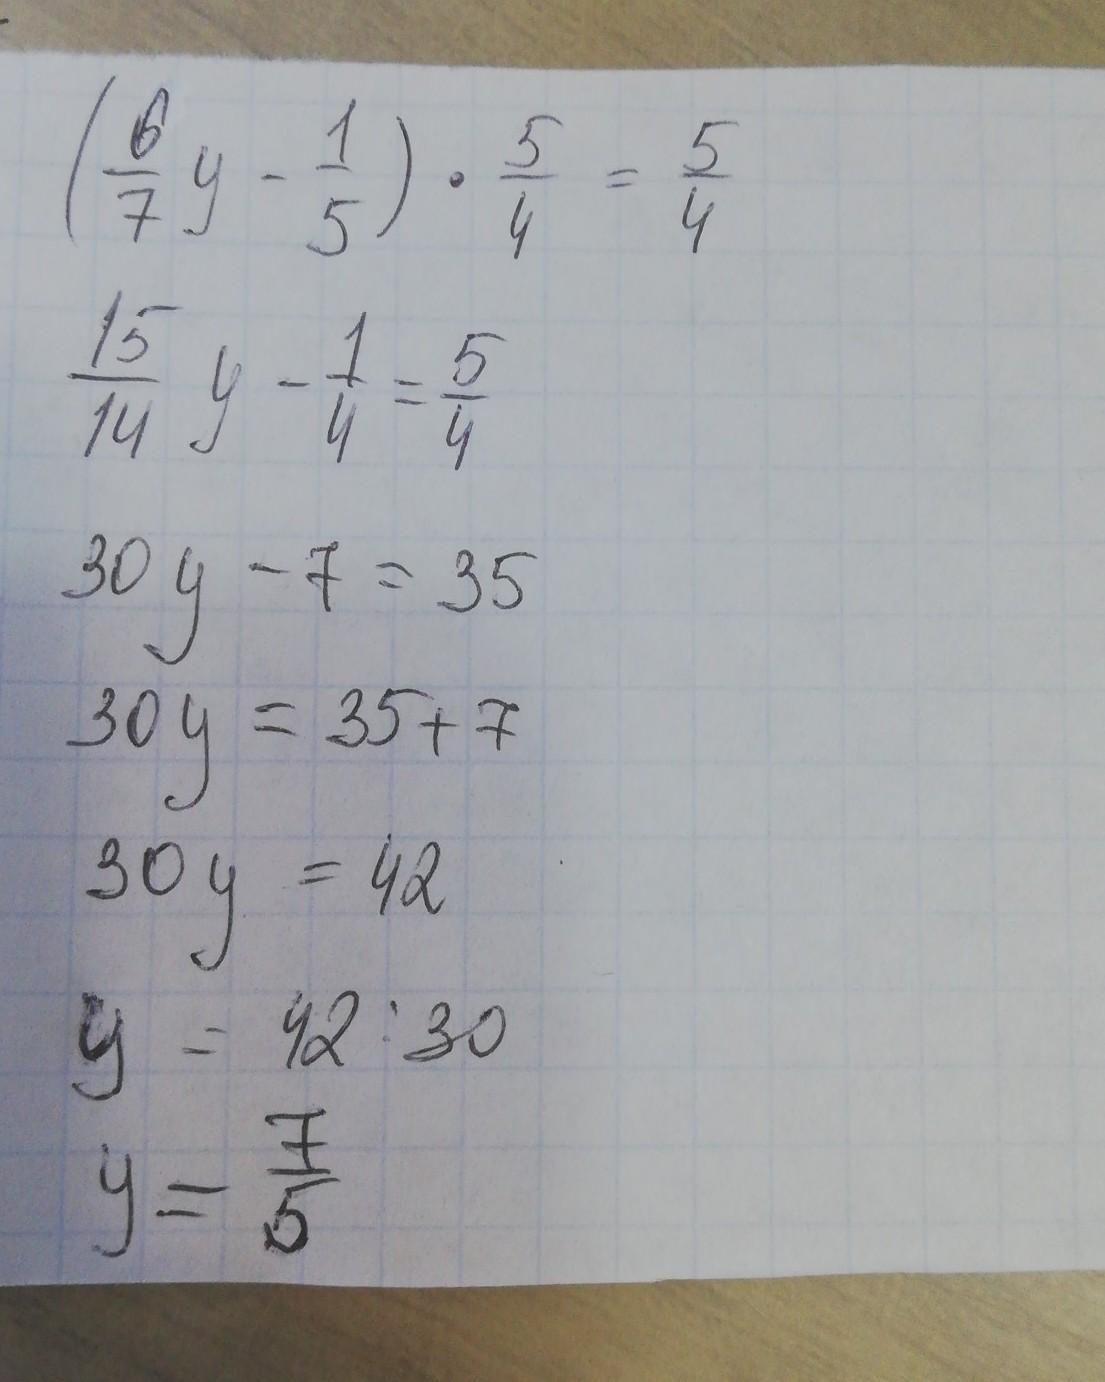 (6/7 y - 1/5) · 5/4 = 5/4
15/14 y - 1/4 = 5/4
30y - 7 = 35
30y = 35 + 7
30y = 42
y = 42 : 30
y = 7/5